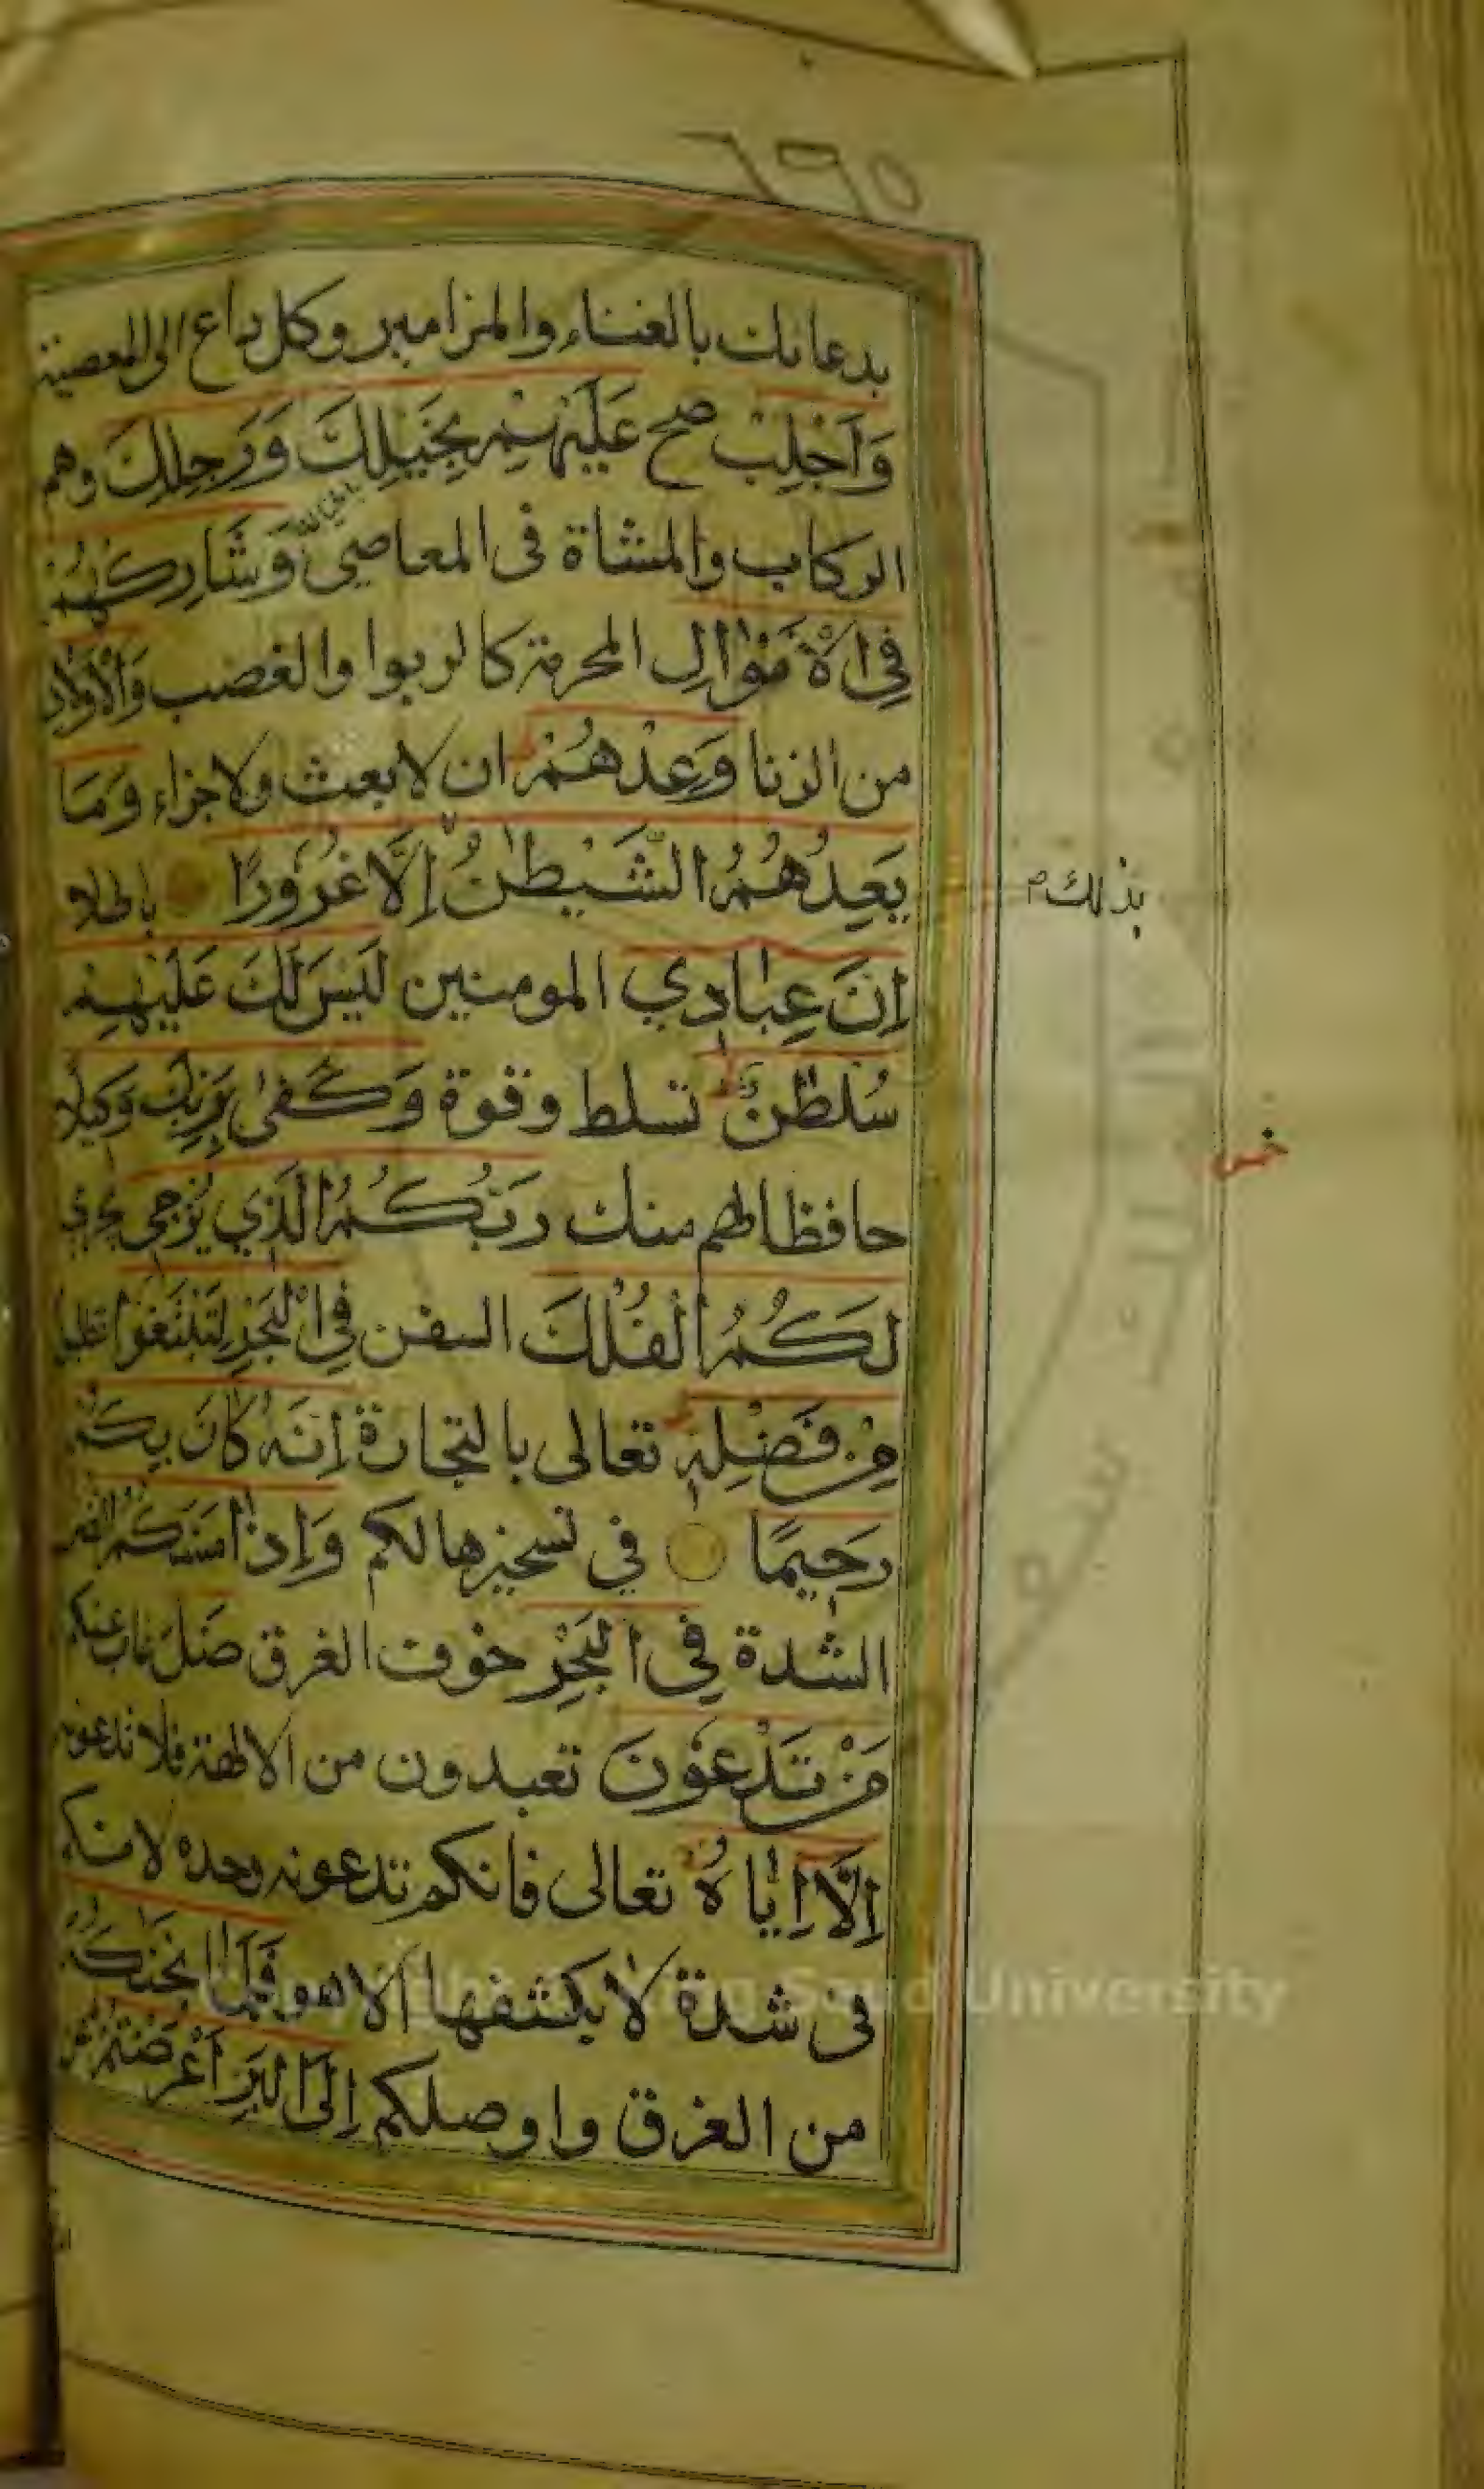 ٦٦٥
بدعائك بالغناء والمزامير وكل داع الى المعصية
وَاَجْلِبْ صح عَلَيْهِمْ بِخَيْلِكَ وَرَجِلِكَ وهم
الركاب والمشاة فى المعاصى وَشَارِكْهُمْ
فِى الْاَمْوَالِ المحرمة كالربوا والغصب وَالْاَوْلَادِ
من الزنا وَعِدْهُمْ ان لا بعث ولا جزاء وَمَا
يَعِدُهُمُ الشَّيْطٰنُ اِلَّا غُرُورًا باطلا
بذلك م
اِنَّ عِبَادِي المومنين لَيْسَ لَكَ عَلَيْهِمْ
سُلْطٰنٌ تسلط وقوة وَكَفٰى بِرَبِّكَ وَكِيلًا
خمس
حافظا لهم منك رَبُّكُمُ الَّذِي يُزْجِي يجري
لَكُمُ الْفُلْكَ السفن فِي الْبَحْرِ لِتَبْتَغُوا تطلبوا
مِنْ فَضْلِهِ تعالى بالتجارة اِنَّهُ كَانَ بِكُمْ
رَحِيمًا في تسخيرها لكم وَاِذَا مَسَّكُمُ الضر
الشدة فِي الْبَحْرِ خوف الغرق ضَلَّ غاب عنكم
مَنْ تَدْعُونَ تعبدون من الالهة فلا تدعونه
اِلَّا اِيَّاهُ تعالى فانكم تدعونه وحده لانكم
فى شدة لا يكشفها الا هو فَلَمَّا نَجّٰىكُمْ
من الغرق واوصلكم اِلَى الْبَرِّ اَعْرَضْتُمْ عن
King Saud University